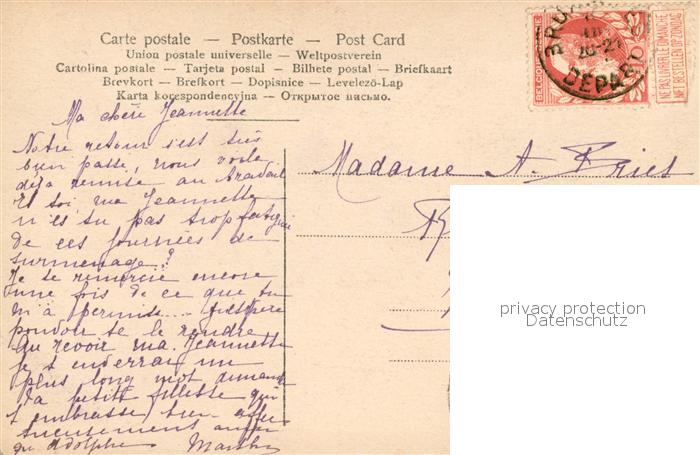 Carte postale — Postkarte — Post Card
Union postale universelle — Weltpostverein
Cartolina postale — Tarjeta postal — Bilhete postal — Briefkaart
Brevkort — Brefkort — Dopisnice — Levelező-Lap
Karta korespondencyjna — Открытое письмо.
BRUX
18
20-21
DEPART
BELGIQUE
10
NE PAS LIVRER LE DIMANCHE
NIET BESTELLEN OP ZONDAG
Ma chère Jeannette
Notre retour s'est très
bien passé, nous voila
déja remise au travail
Et toi, ma Jeannette
n'es tu pas trop fatiguée
de ces journées de
surmenage?
Je te remercie encore
une fois de ce que tu
m'a permise... J'espère
pouvoir te le rendre
Au revoir ma Jeannette
je t'enverrai un
plus long mot demain
Ta petite fillette qui
t'embrasse bien affec
tueusement ainsi
qu' Adolphe Martha
Madame A.
privacy protection
Datenschutz